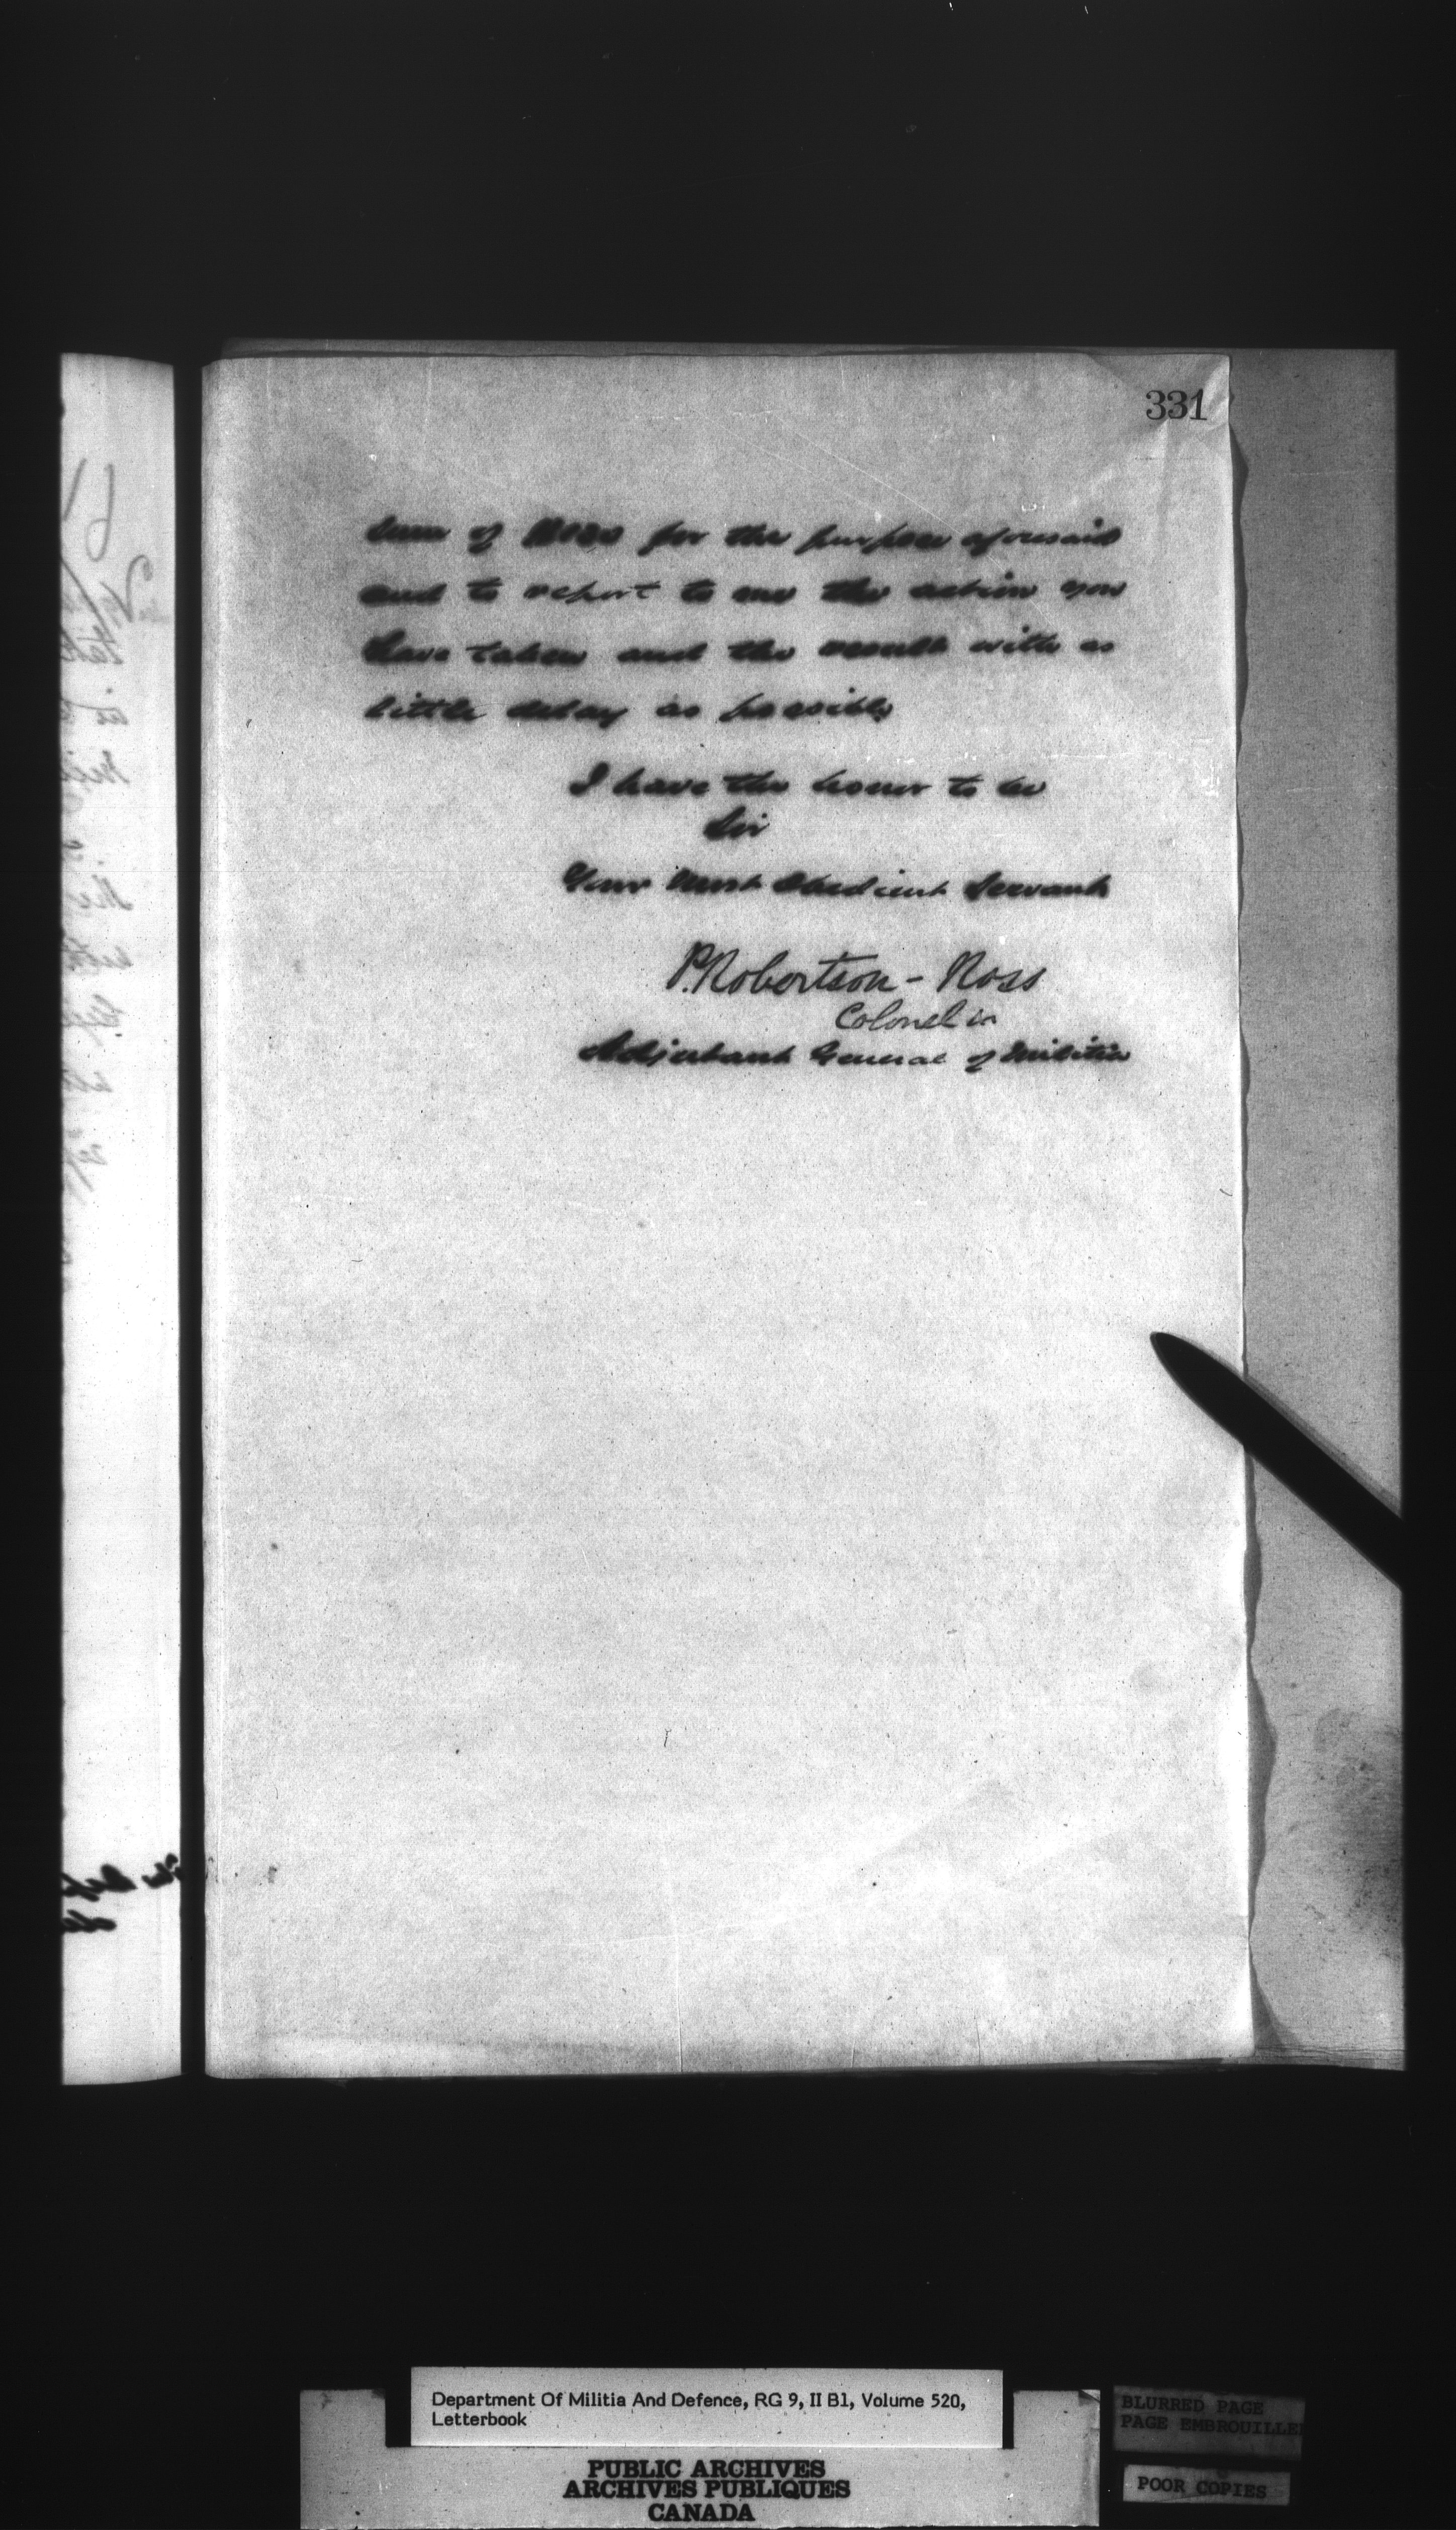 331
sum of for the purpose aforesaid
and to report to me the action you
have taken and the result with as
little delay as possible
I have the honor to be
Sir
Your Most Obedient Servant
P. Robertson-Ross
Colonel
Adjutant General of Militia
Department Of Militia And Defence, RG 9, II B1, Volume 520,
Letterbook
PUBLIC ARCHIVES
ARCHIVES PUBLIQUES
CANADA
BLURRED PAGE
PAGE EMBROUILLE
POOR COPIES